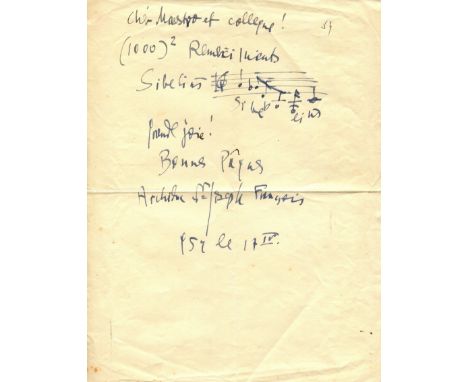 Cher Maestro et collegue! 54
(1000)² Remerciments
Sibelius
si be li us
grande joie!
Bonnes Pâques
Joseph François
954 le 17 IV.